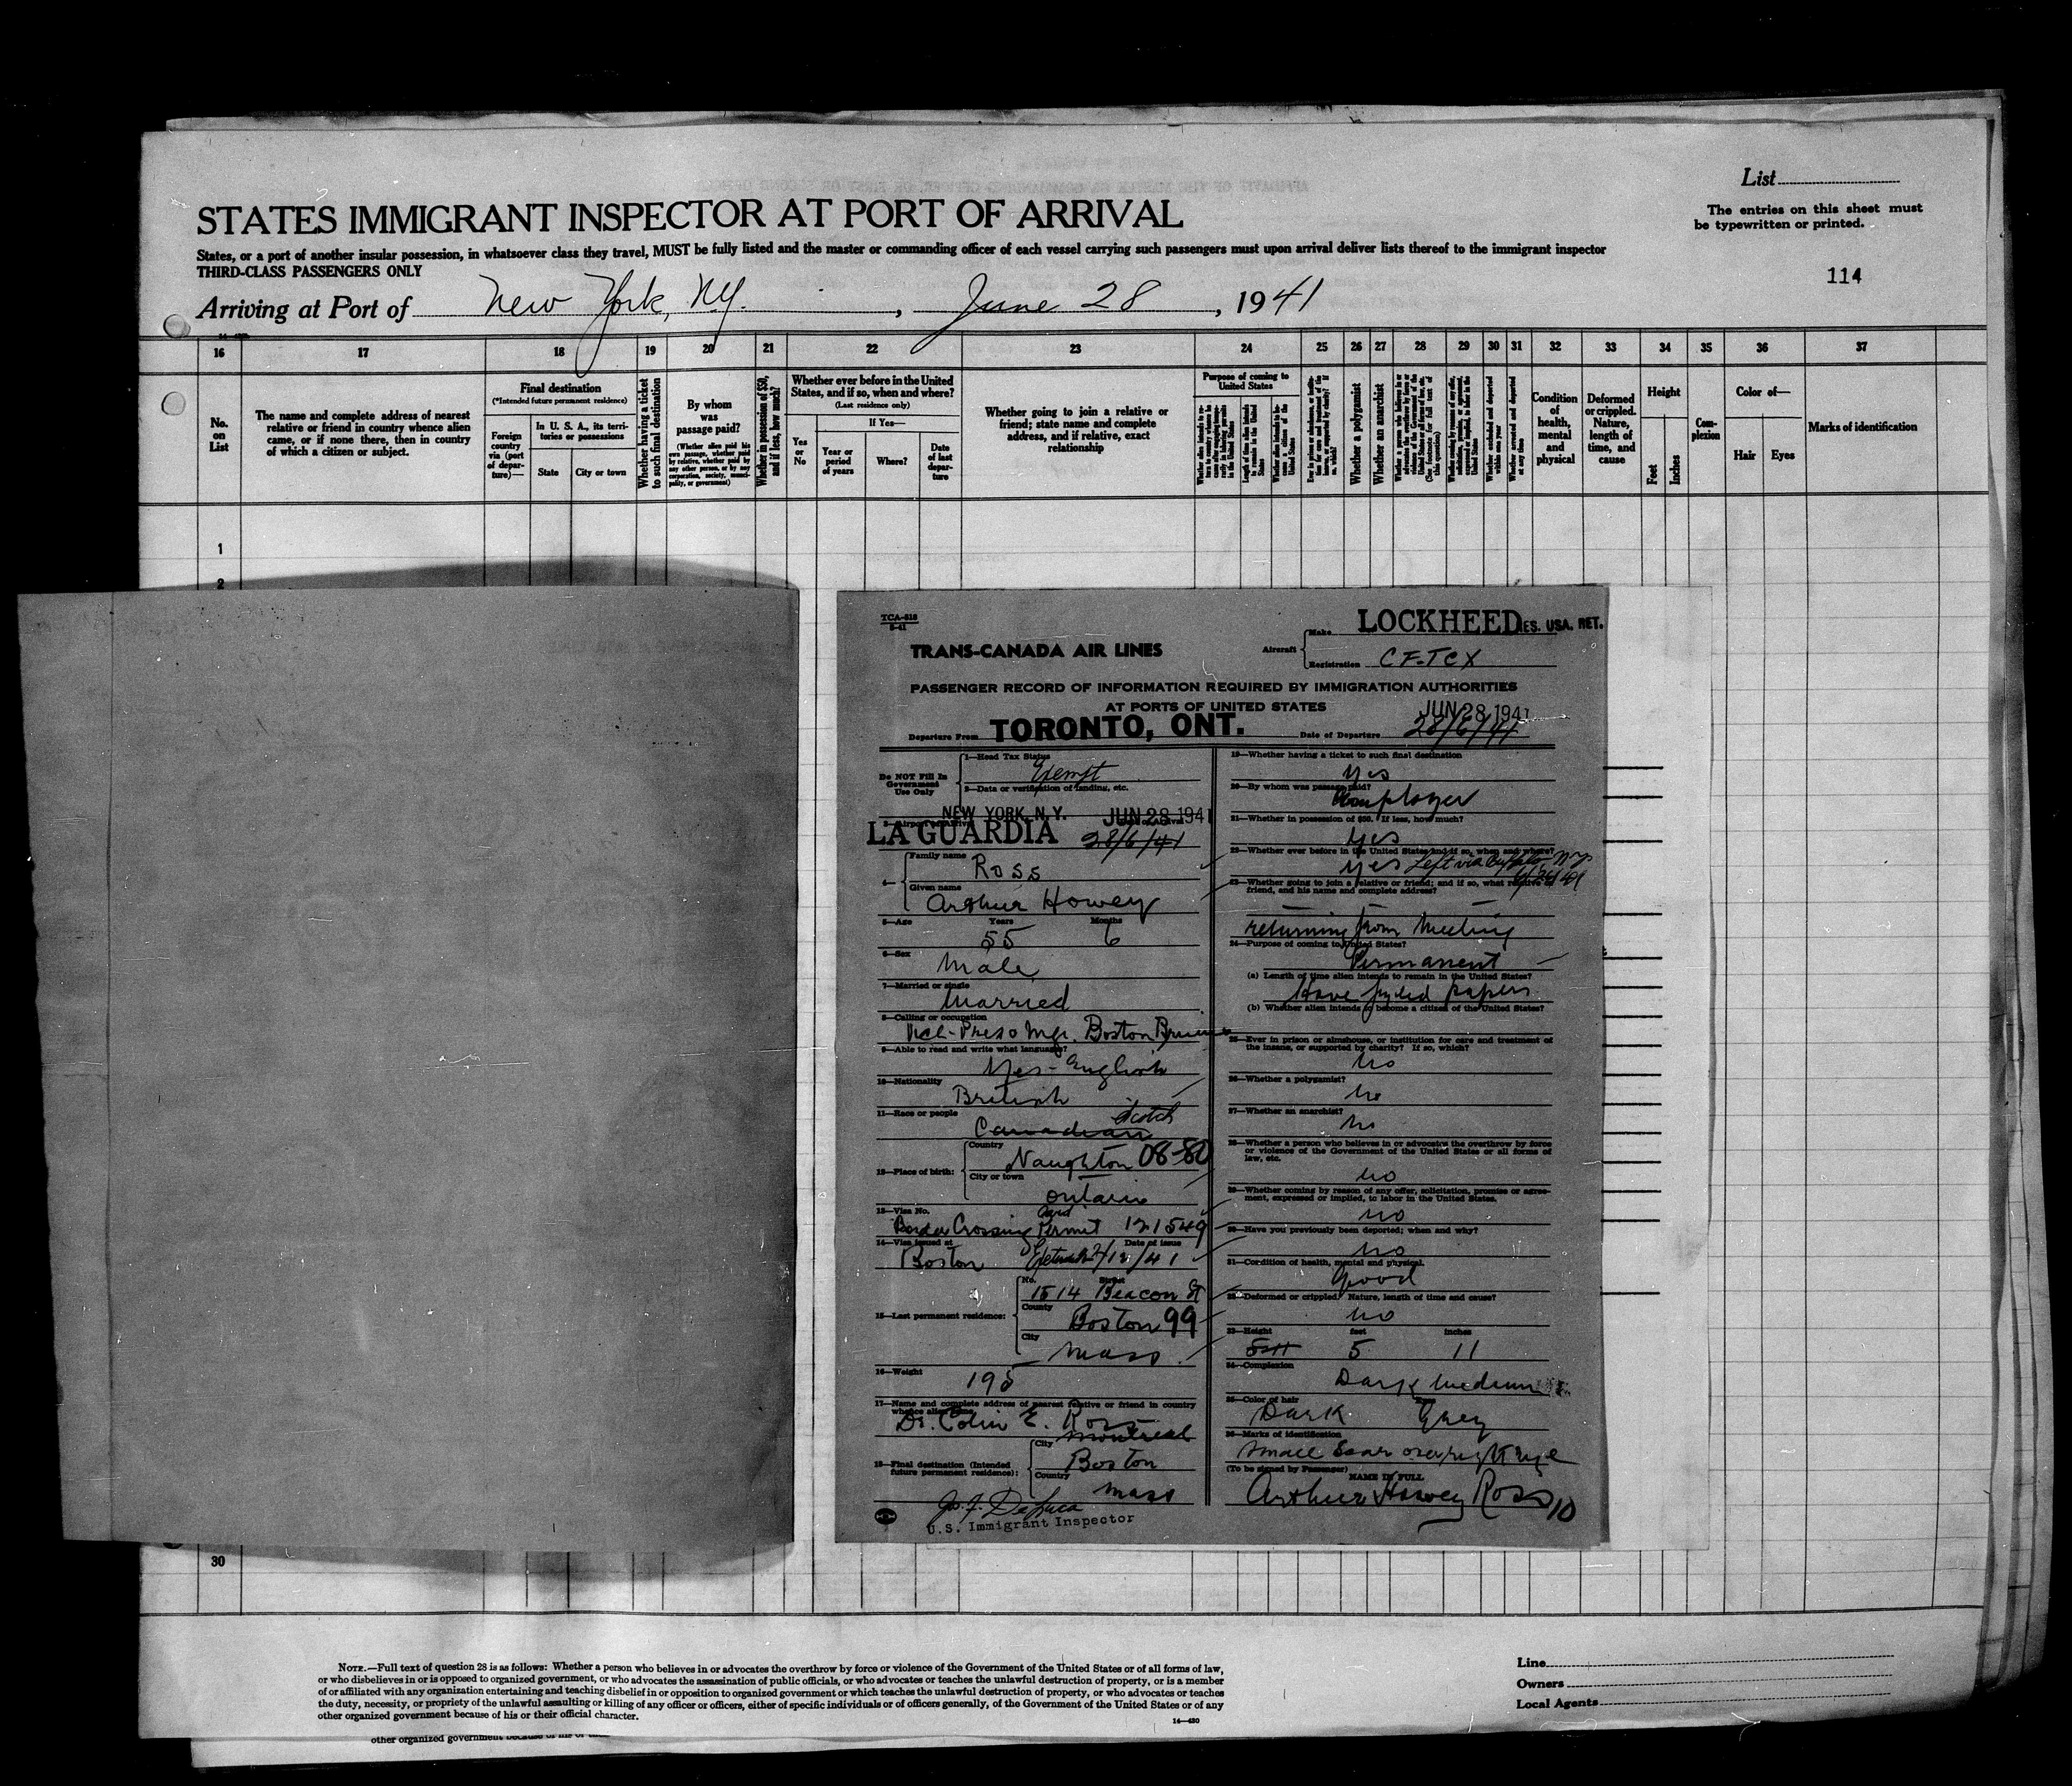 List
STATES IMMIGRANT INSPECTOR AT PORT OF ARRIVAL
The entries on this sheet must
be typewritten or printed.
States, or a port of another insular possession, in whatsoever class they travel, MUST be fully listed and the master or commanding officer of each vessel carrying such passengers must upon arrival deliver lists thereof to the immigrant inspector
THIRD-CLASS PASSENGERS ONLY
114
Arriving at Port of New York, N.Y. , June 28 , 1941
16 17 18 19 20 21 22 23 24 25 26 27 28 29 30 31 32 33 34 35 36 37
No. on List
The name and complete address of nearest
relative or friend in country whence alien
came, or if none there, then in country
of which a citizen or subject.
Final destination
(*Intended future permanent residence)
Foreign country via (port of departure)—
In U. S. A., its territories or possessions
State
City or town
Whether having a ticket to such final destination
By whom was passage paid?
(Whether alien paid his own passage, whether paid by relative, whether paid by any other person, or by any corporation, society, municipality, or government)
Whether in possession of $50, and if less, how much?
Whether ever before in the United
States, and if so, when and where?
(Last residence only)
If Yes—
Yes or No
Year or period of years
Where?
Date of last departure
Whether going to join a relative or
friend; state name and complete
address, and if relative, exact
relationship
Purpose of coming to
United States
Whether a polygamist
Whether an anarchist
Condition of health, mental and physical
Deformed or crippled. Nature, length of time, and cause
Height
Feet
Inches
Complexion
Color of—
Hair
Eyes
Marks of identification
1
2
30
TCA-518
5-41
TRANS-CANADA AIR LINES
Aircraft
Make LOCKHEED
ES. USA. RET.
Registration CF-TCX
PASSENGER RECORD OF INFORMATION REQUIRED BY IMMIGRATION AUTHORITIES
AT PORTS OF UNITED STATES
JUN 28 1941
Departure From TORONTO, ONT. Date of Departure 28/6/41
Do NOT Fill In
Government
Use Only
1—Head Tax Status
Exempt
2—Data or verification of landing, etc.
NEW YORK, N.Y. JUN 28 1941
3—Airport of Arrival
LA GUARDIA 28/6/41
4— Family name Ross
Given name
Arthur Howey
5—Age Years Months
55 6
6—Sex
Male
7—Married or single
Married
8—Calling or occupation
Vice-Pres & Mgr. Boston Bruins
9—Able to read and write what language?
Yes - English
10—Nationality
British
11—Race or people
Canadian Scotch
12—Place of birth:
Country
Naughton 08-80
City or town
Ontario
13—Visa No.
Border Crossing Card Permit 121549
14—Visa issued at Date of issue
Boston 12/41
15—Last permanent residence:
No. Street
1514 Beacon St
County
Boston 99
City
Mass
16—Weight
195
17—Name and complete address of nearest relative or friend in country
whence alien came
Dr. Colin E. Ross
City Montreal
18—Final destination (Intended
future permanent residence):
Boston
Country
Mass
U.S. Immigrant Inspector
19—Whether having a ticket to such final destination
Yes
20—By whom was passage paid?
Employer
21—Whether in possession of $50. If less, how much?
Yes
22—Whether ever before in the United States and if so, when and where?
Yes Left via Buffalo N.Y.
23—Whether going to join a relative or friend; and if so, what relative or
friend, and his name and complete address?
returning from Meeting
24—Purpose of coming to United States?
Permanent
(a) Length of time alien intends to remain in the United States?
Have filed papers
(b) Whether alien intends to become a citizen of the United States?
25—Ever in prison or almshouse, or institution for care and treatment of
the insane, or supported by charity? If so, which?
No
26—Whether a polygamist?
No
27—Whether an anarchist?
No
28—Whether a person who believes in or advocates the overthrow by force
or violence of the Government of the United States or all forms of
law, etc.
No
29—Whether coming by reason of any offer, solicitation, promise or agree-
ment, expressed or implied, to labor in the United States.
No
30—Have you previously been deported; when and why?
No
31—Condition of health, mental and physical.
Good
32—Deformed or crippled. Nature, length of time and cause?
No
33—Height feet inches
5 11
34—Complexion
Dark Medium
35—Color of hair Eyes
Dark Grey
36—Marks of identification
Small Scar over right eye
(To be signed by Passenger) NAME IN FULL
Arthur Howey Ross 10
NOTE.—Full text of question 28 is as follows: Whether a person who believes in or advocates the overthrow by force or violence of the Government of the United States or of all forms of law,
or who disbelieves in or is opposed to organized government, or who advocates the assassination of public officials, or who advocates or teaches the unlawful destruction of property, or is a member
of or affiliated with any organization entertaining and teaching disbelief in or opposition to organized government or which teaches the unlawful destruction of property, or who advocates or teaches
the duty, necessity, or propriety of the unlawful assaulting or killing of any officer or officers, either of specific individuals or of officers generally, of the Government of the United States or of any
other organized government because of his or their official character.
14—430
other organized government because of his or
Line
Owners
Local Agents